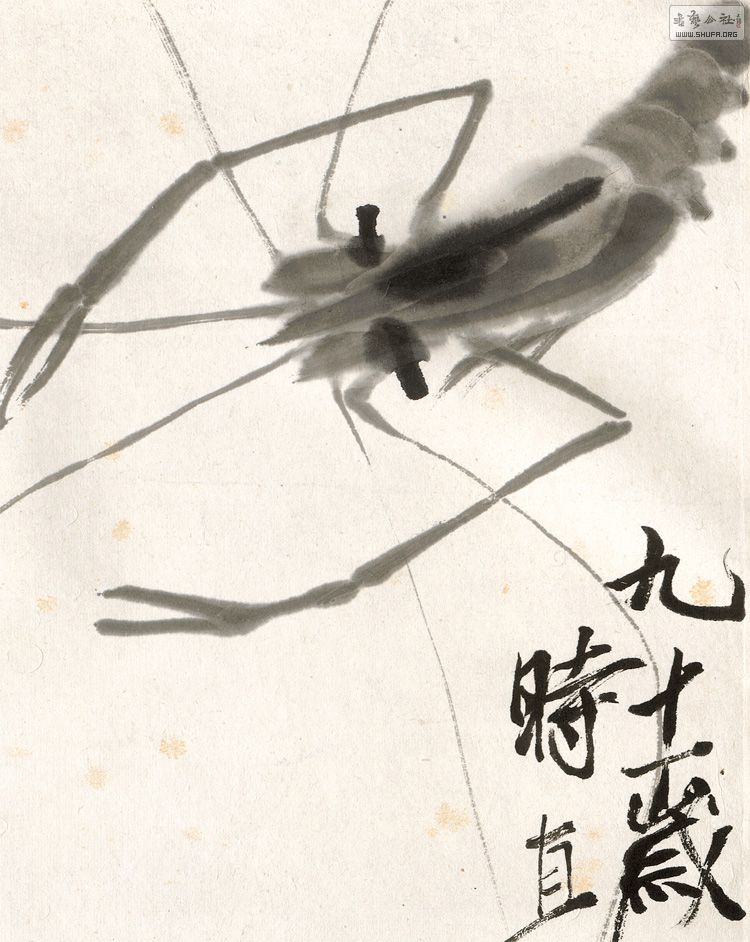 九十歲
時直
書藝公社
WWW.SHUFA.ORG